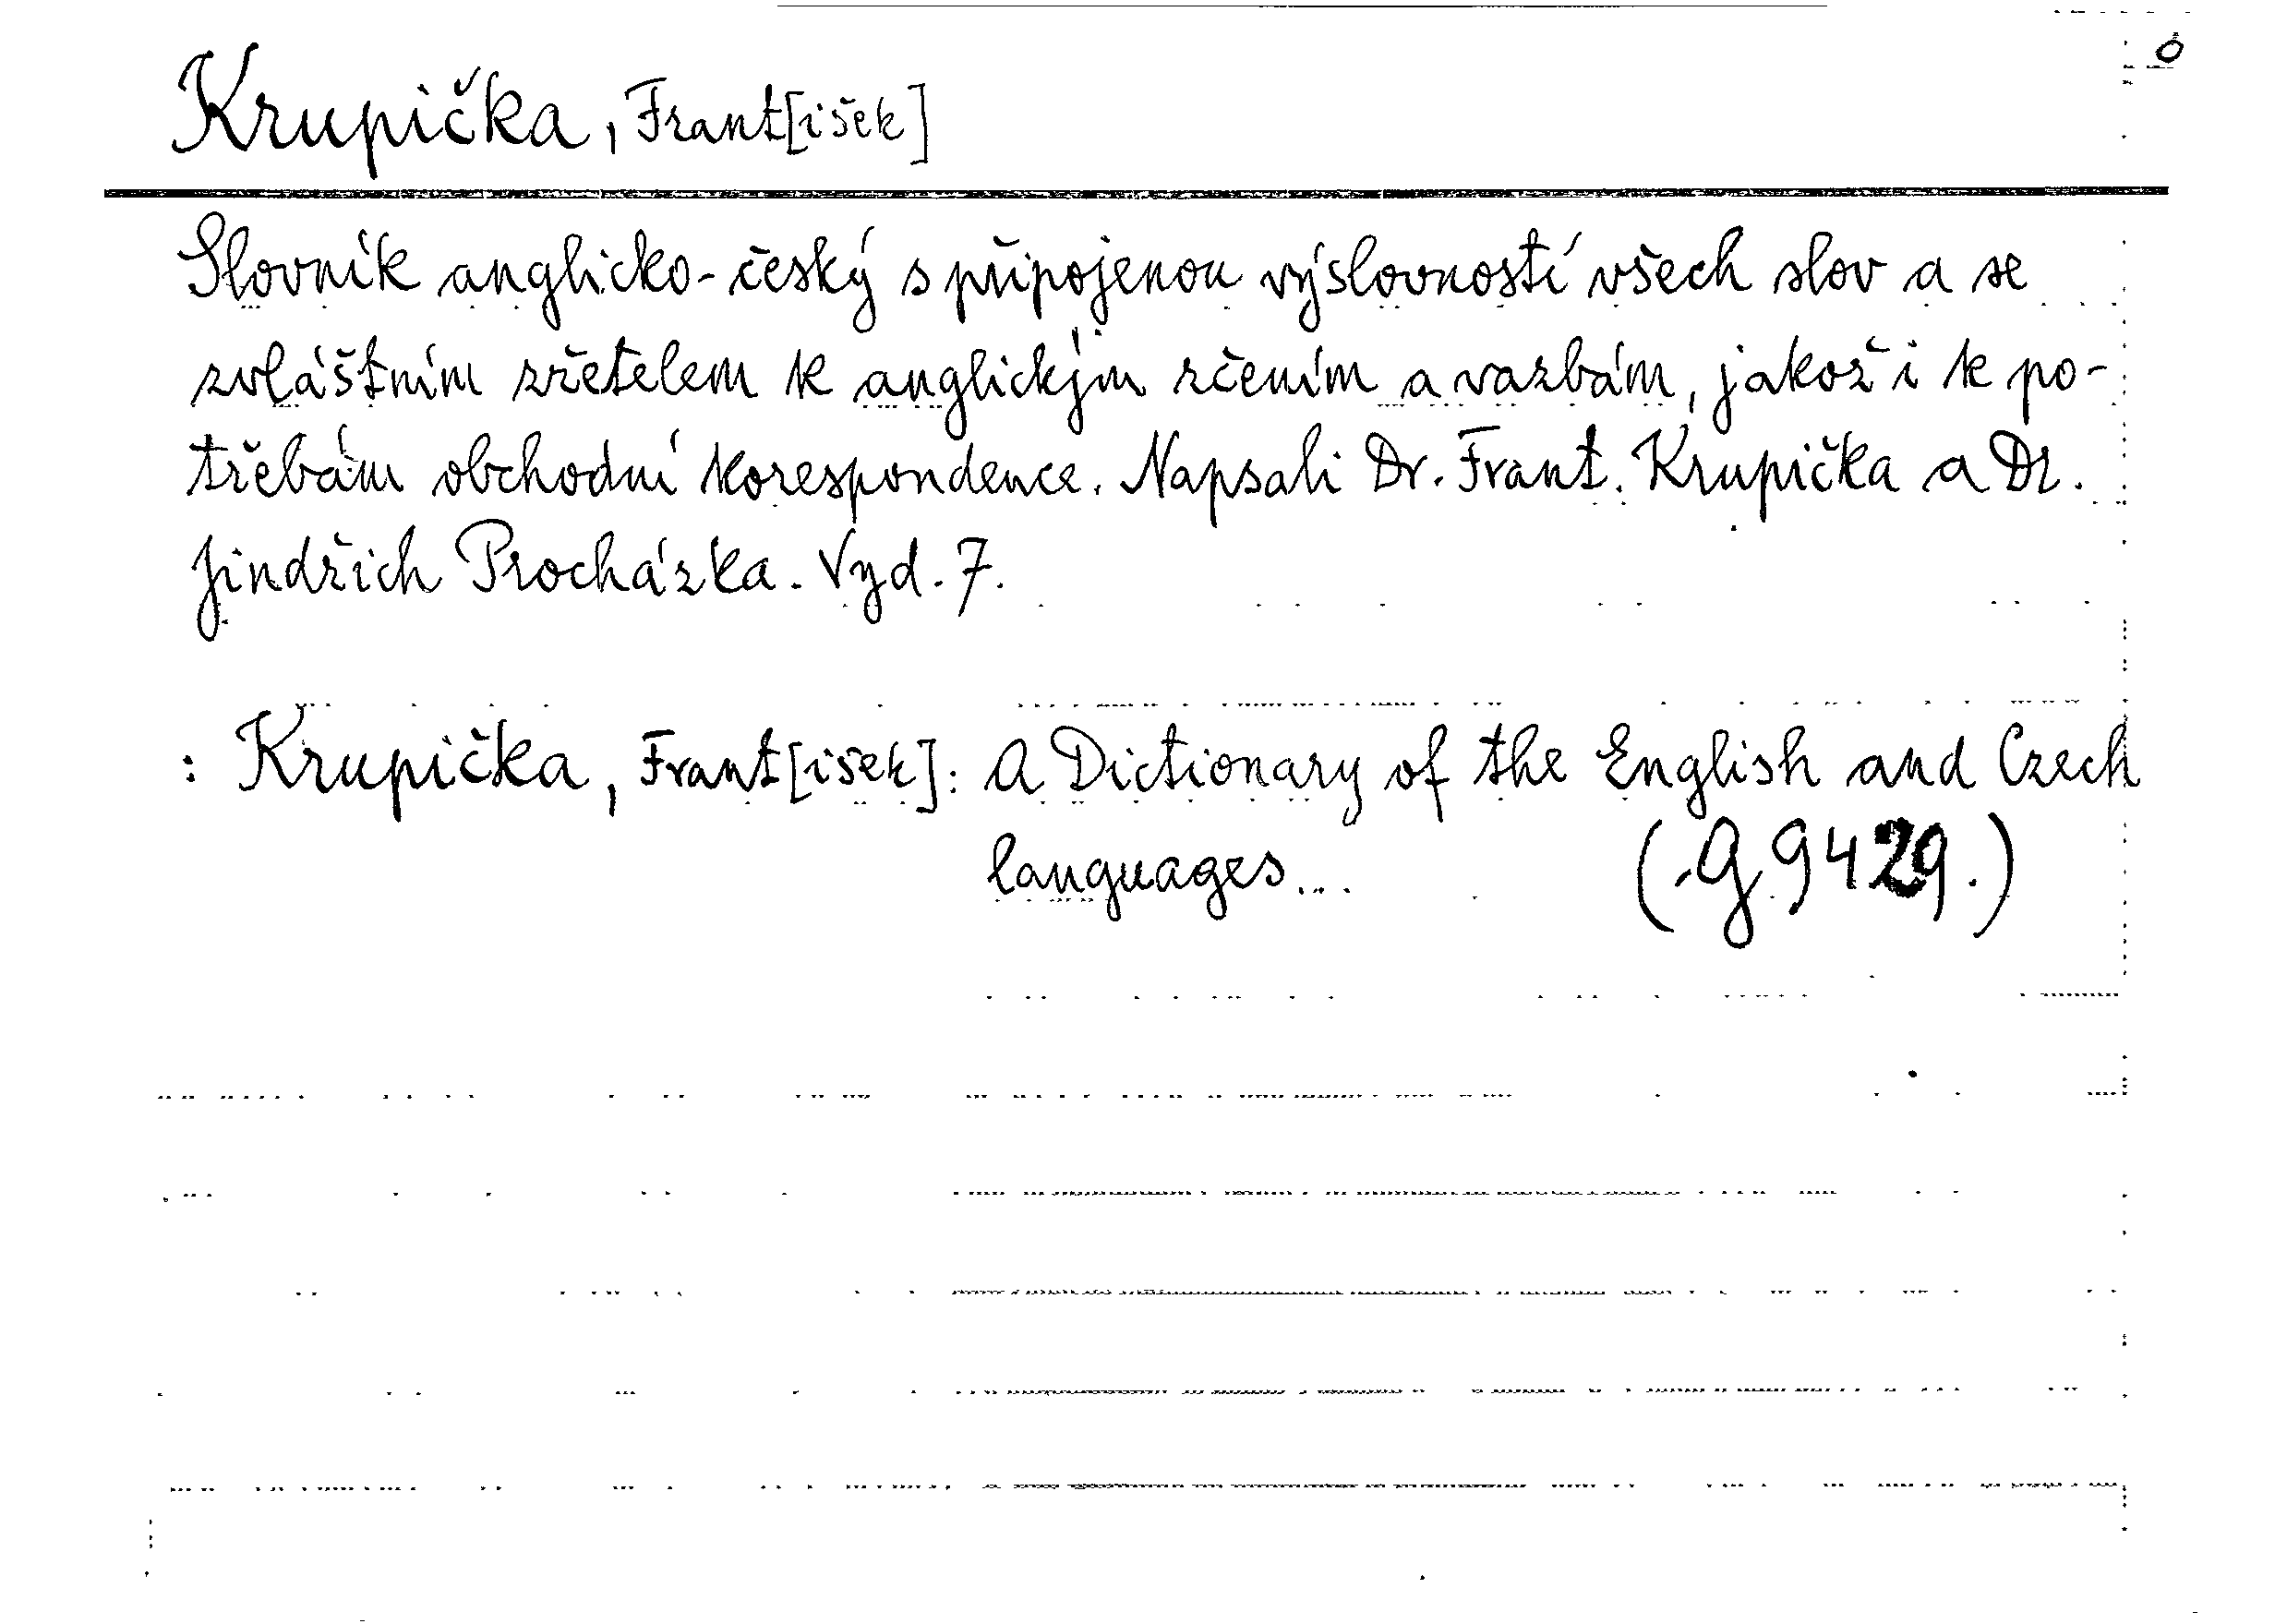 Krupička, Frant[išek]
Slovník anglicko-český s připojenou výslovností všech slov a se
zvláštním zřetelem k anglickým rčením a vazbám, jakož i k po-
třebám obchodní korespondence. Napsali Dr. Frant. Krupička a Dr.
Jindřich Procházka. Vyd. 7.
: Krupička, Frant[išek]: A Dictionary of the English and Czech
languages...
(.G 9429.)